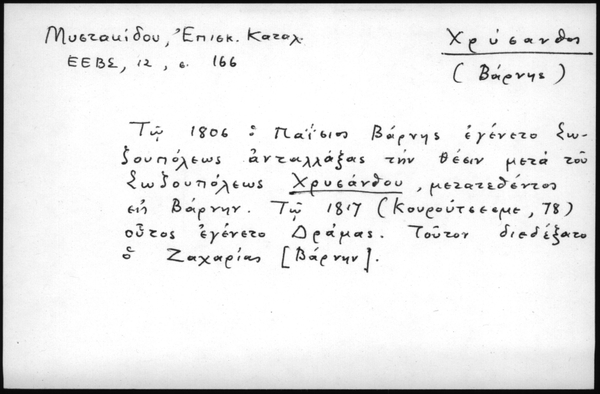 Μυστακίδου, Ἐπισκ. Καταλ.
ΕΕΒΣ, 12, σ. 166
Χρύσανθος
(Βάρνης)
Τῷ 1806 ὁ Παΐσιος Βάρνης ἐγένετο Σω-
ζουπόλεως ἀνταλλάξας τὴν θέσιν μετὰ τοῦ
Σωζουπόλεως Χρυσάνθου, μετατεθέντος
εἰς Βάρνην. Τῷ 1817 (Κουρούτσεσμε, 78)
οὗτος ἐγένετο Δράμας. Τοῦτον διεδέξατο
ὁ Ζαχαρίας [Βάρνην].